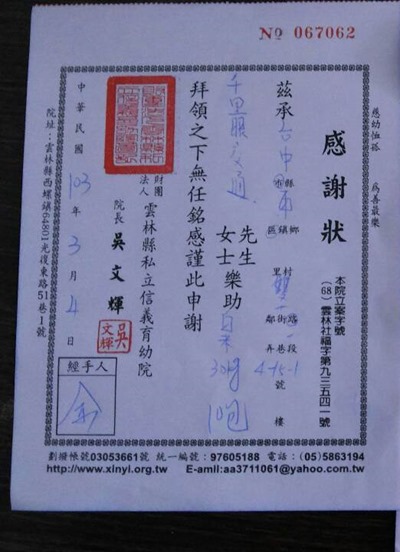 No 067062
慈幼恤孤　為善最樂
感謝狀
本院立案字號
(68)雲林社福字第九三五四一號
茲承台中市縣 區鎮鄉 里村 鄰街路 弄巷段 4-15-1號 樓
千里眼交通 先生女士樂助白米30斤10包
拜領之下無任銘感謹此申謝
財團法人雲林縣私立信義育幼院
院長 吳文輝
吳文輝
中華民國103年3月4日
院址:雲林縣西螺鎮64801光復東路51巷1號
經手人
劃撥帳號03053661號 統一編號:97605188 電話:(05)5863194
http://www.xinyi.org.tw E-amil:aa3711061@yahoo.com.tw